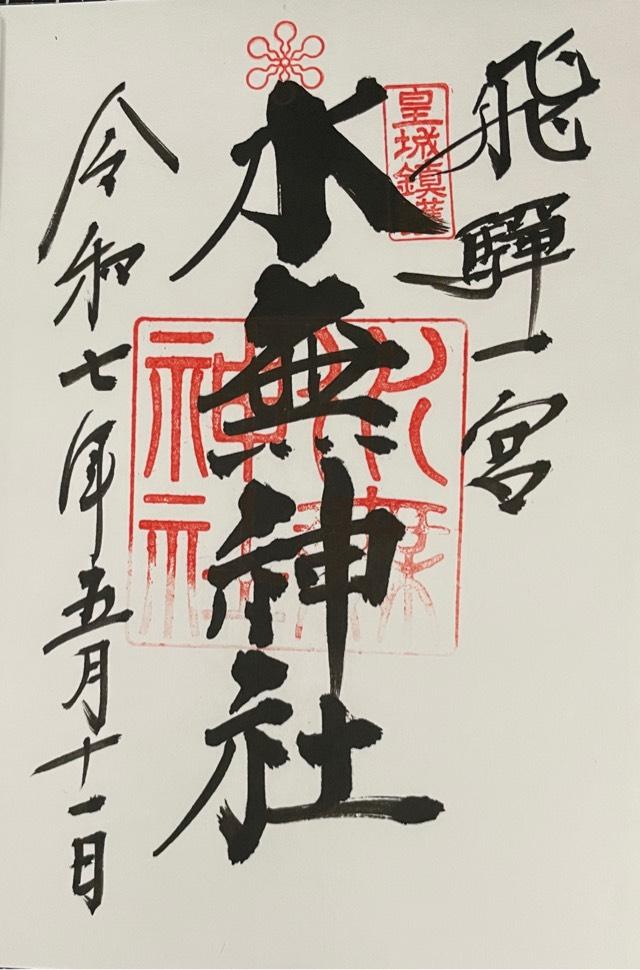 飛騨一宮
皇城鎮護
水無神社
水無神社
令和七年五月十一日